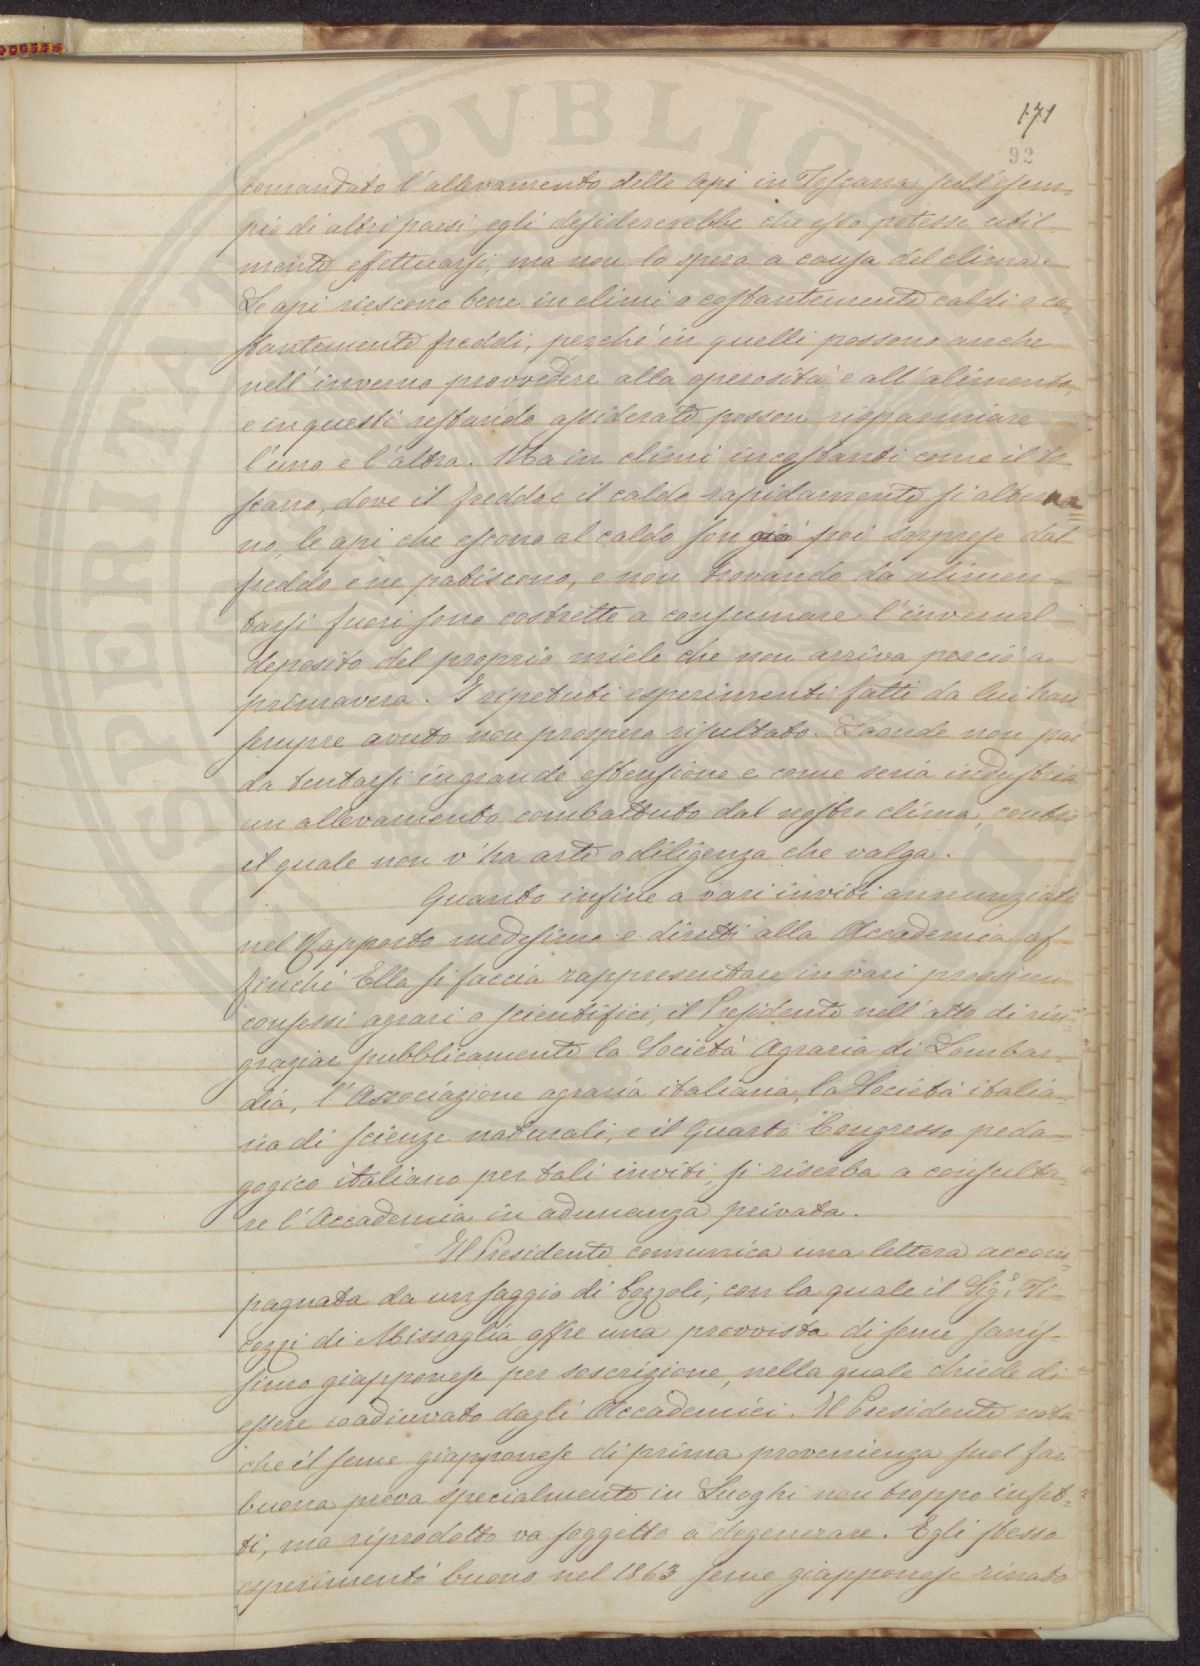 171
92
comandato l'allevamento delle api in Toscana sull'esem-
pio di altri paesi, egli desidererebbe che esso potesse util-
mente effettuarsi, ma non lo spera a causa del clima.
Le api riescono bene in climi o costantemente caldi o co-
stantemente freddi, perché in quelli possono anche
nell'inverno provvedere alla operosità e all'alimento,
e in questi restando assiderate posson risparmiare
l'uno e l'altra. Ma in climi incostanti come il to-
scano, dove il freddo e il caldo rapidamente si alterna
no, le api che escono al caldo son poi sorprese dal
freddo e ne patiscono, e non trovando da alimen-
tarsi fuori sono costrette a consumare l'invernal
deposito del proprio miele che non arriva perciò a
primavera. I ripetuti esperimenti fatti da lui han
sempre avuto non prospero risultato. Laonde non par
da tentarsi in grande estensione e come seria industria
un allevamento combattuto dal nostro clima, contro
il quale non v'ha arte o diligenza che valga.
Quanto infine a vari inviti annunziati
nel Rapporto medesimo e diretti alla Accademia af-
finché Ella si faccia rappresentare in vari prossimi
consessi agrari o scientifici, il Presidente nell'atto di rin-
graziar pubblicamente la Società Agraria di Lombar-
dia, l'Associazione agraria italiana, la Società italia-
na di scienze naturali, e il Quarto Congresso peda-
gogico italiano per tali inviti, si riserba a consulta-
re l'Accademia in adunanza privata.
Il Presidente comunica una lettera accom-
pagnata da un saggio di bozzoli, con la quale il Sig.e Ti-
cozzi di Missaglia offre una provvista di seme sanis-
simo giapponese per soscrizione, nella quale chiede di
essere coadiuvato dagli Accademici. Il Presidente nota
che il seme giapponese di prima provenienza suol far
buona prova specialmente in Luoghi non troppo infet-
ti, ma riprodotto va soggetto a degenerare. Egli stesso
esperimentò buono nel 1863 seme giapponese rinato